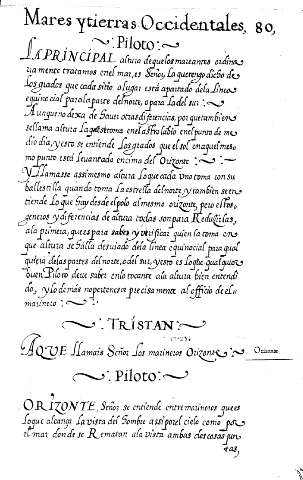 Mares y tierras Occidentales, 80,
Piloto
LA PRINCIPAL altura de que los mareantes ordina
riamente tratamos en el mar, es Señor, la que tengo dicho de
los grados que cada sitio o lugar está apartado de la linea
equinocial para la parte del norte, o para la del sur:
Aunque no dexa de hauer otras diferencias, porque tambien
se llama altura la que se toma en el astrolabio en el punto de me
dio dia, y esto se entiende los grados que el sol en aquel mes
mo punto está leuantado encima del Orizonte.
Y llamase assi mesmo altura lo que cada uno toma con su
ballestilla quando toma la estrella del norte, y tambien se en
tiende lo que hay desde el polo al mesmo orizonte, pero estos
generos y diferencias de altura todas son para Reduzirlas,
a la primera, que es para saber y verificar quien la toma en
que altura se halla desuiado de la linea equinocial para qual
quiera de las partes del norte, o del sur, y esto es lo que qualquier
buen Piloto deue saber en lo tocante a la altura bien entendi
do, y lo demas no pertenece precisamente al officio de el
marinero:
TRISTAN
A QVE llamais Señor los marineros Orizonte
Orizonte.
Piloto:
ORIZONTE, Señor se entiende entre marineros que es
lo que alcança la vista del hombre assi por el cielo como por
el mar donde se Rematan a la vista ambas des cosas jun
tas,